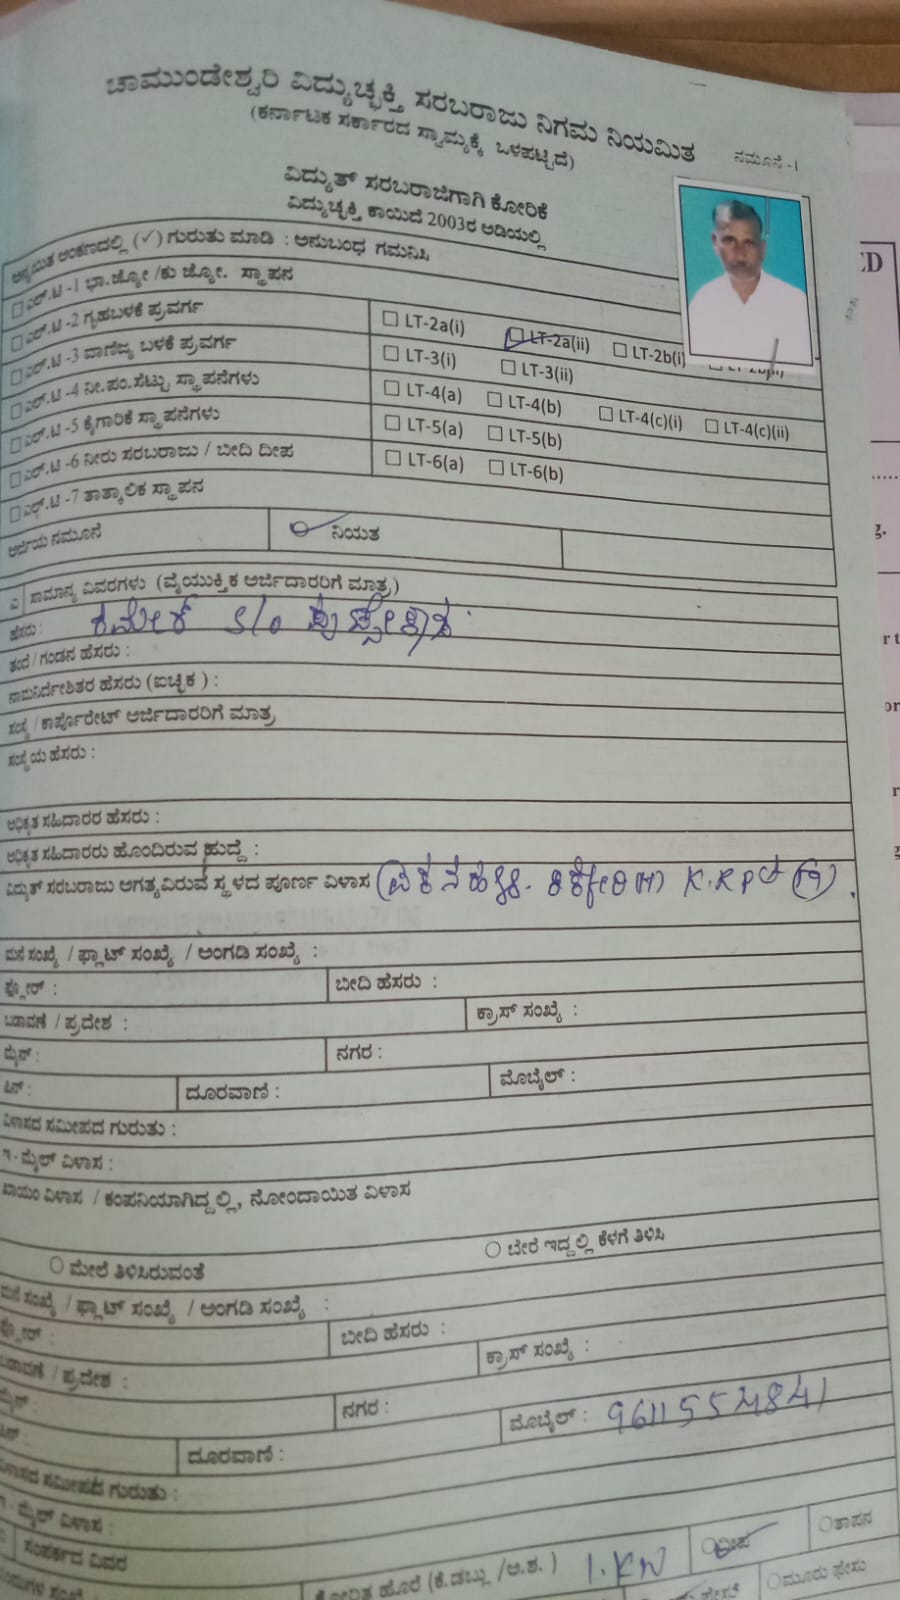 ಚಾಮುಂಡೇಶ್ವರಿ ವಿದ್ಯುಚ್ಛಕ್ತಿ ಸರಬರಾಜು ನಿಗಮ ನಿಯಮಿತ
(ಕರ್ನಾಟಕ ಸರ್ಕಾರದ ಸ್ವಾಮ್ಯಕ್ಕೆ ಒಳಪಟ್ಟಿದೆ)
ನಮೂನೆ -1
ವಿದ್ಯುತ್ ಸರಬರಾಜಿಗಾಗಿ ಕೋರಿಕೆ
ವಿದ್ಯುಚ್ಛಕ್ತಿ ಕಾಯಿದೆ 2003ರ ಅಡಿಯಲ್ಲಿ
ಅನ್ವಯಿತ ಅಂಕಣದಲ್ಲಿ (✓) ಗುರುತು ಮಾಡಿ : ಅನುಬಂಧ ಗಮನಿಸಿ
□ ಎಲ್.ಟಿ -1 ಭಾ.ಜ್ಯೋ /ಕು ಜ್ಯೋ. ಸ್ಥಾಪನ
□ ಎಲ್.ಟಿ -2 ಗೃಹಬಳಕೆ ಪ್ರವರ್ಗ □ LT-2a(i) □ LT-2a(ii) □ LT-2b(i)
□ ಎಲ್.ಟಿ -3 ವಾಣಿಜ್ಯ ಬಳಕೆ ಪ್ರವರ್ಗ □ LT-3(i) □ LT-3(ii)
□ ಎಲ್.ಟಿ -4 ನೀ.ಪಂ.ಸೆಟ್ಟು ಸ್ಥಾಪನೆಗಳು □ LT-4(a) □ LT-4(b) □ LT-4(c)(i) □ LT-4(c)(ii)
□ ಎಲ್.ಟಿ -5 ಕೈಗಾರಿಕೆ ಸ್ಥಾಪನೆಗಳು □ LT-5(a) □ LT-5(b)
□ ಎಲ್.ಟಿ -6 ನೀರು ಸರಬರಾಜು / ಬೀದಿ ದೀಪ □ LT-6(a) □ LT-6(b)
□ ಎಲ್.ಟಿ -7 ತಾತ್ಕಾಲಿಕ ಸ್ಥಾಪನ
ಅರ್ಜಿಯ ನಮೂನೆ ನಿಯತ
ಎ ಸಾಮಾನ್ಯ ವಿವರಗಳು (ವೈಯುಕ್ತಿಕ ಅರ್ಜಿದಾರರಿಗೆ ಮಾತ್ರ)
ಹೆಸರು : S/o
ತಂದೆ / ಗಂಡನ ಹೆಸರು :
ನಾಮನಿರ್ದೇಶಿತರ ಹೆಸರು (ಐಚ್ಛಿಕ ) :
ಸಂಸ್ಥೆ / ಕಾರ್ಪೊರೇಟ್ ಅರ್ಜಿದಾರರಿಗೆ ಮಾತ್ರ
ಸಂಸ್ಥೆಯ ಹೆಸರು :
ಅಧಿಕೃತ ಸಹಿದಾರರ ಹೆಸರು :
ಅಧಿಕೃತ ಸಹಿದಾರರು ಹೊಂದಿರುವ ಹುದ್ದೆ :
ವಿದ್ಯುತ್ ಸರಬರಾಜು ಅಗತ್ಯವಿರುವ ಸ್ಥಳದ ಪೂರ್ಣ ವಿಳಾಸ (H) K.R.P
ಮನೆ ಸಂಖ್ಯೆ / ಫ್ಲಾಟ್ ಸಂಖ್ಯೆ / ಅಂಗಡಿ ಸಂಖ್ಯೆ :
ಫ್ಲೋರ್ : ಬೀದಿ ಹೆಸರು :
ಬಡಾವಣೆ / ಪ್ರದೇಶ : ಕ್ರಾಸ್ ಸಂಖ್ಯೆ :
ಮೈನ್ : ನಗರ :
ಪಿನ್ : ದೂರವಾಣಿ : ಮೊಬೈಲ್ :
ವಿಳಾಸದ ಸಮೀಪದ ಗುರುತು :
ಇ - ಮೈಲ್ ವಿಳಾಸ :
ಖಾಯಂ ವಿಳಾಸ / ಕಂಪನಿಯಾಗಿದ್ದಲ್ಲಿ, ನೋಂದಾಯಿತ ವಿಳಾಸ
○ ಮೇಲೆ ತಿಳಿಸಿರುವಂತೆ ○ ಬೇರೆ ಇದ್ದಲ್ಲಿ ಕೆಳಗೆ ತಿಳಿಸಿ
ಮನೆ ಸಂಖ್ಯೆ / ಫ್ಲಾಟ್ ಸಂಖ್ಯೆ / ಅಂಗಡಿ ಸಂಖ್ಯೆ :
ಫ್ಲೋರ್ : ಬೀದಿ ಹೆಸರು :
ಬಡಾವಣೆ / ಪ್ರದೇಶ : ಕ್ರಾಸ್ ಸಂಖ್ಯೆ :
ಮೈನ್ : ನಗರ :
ಪಿನ್ : ದೂರವಾಣಿ : ಮೊಬೈಲ್ : 9611554841
ವಿಳಾಸದ ಸಮೀಪದ ಗುರುತು :
ಇ - ಮೈಲ್ ವಿಳಾಸ :
ಸಂಪರ್ಕದ ವಿವರ
ಕೋರಿತ ಹೊರೆ (ಕೆ.ಡಬ್ಲು /ಅ.ಶ. ) 1.KW ○ ದೀಪ ○ ತಾಪನ
○ ಮೂರು ಫೇಸು